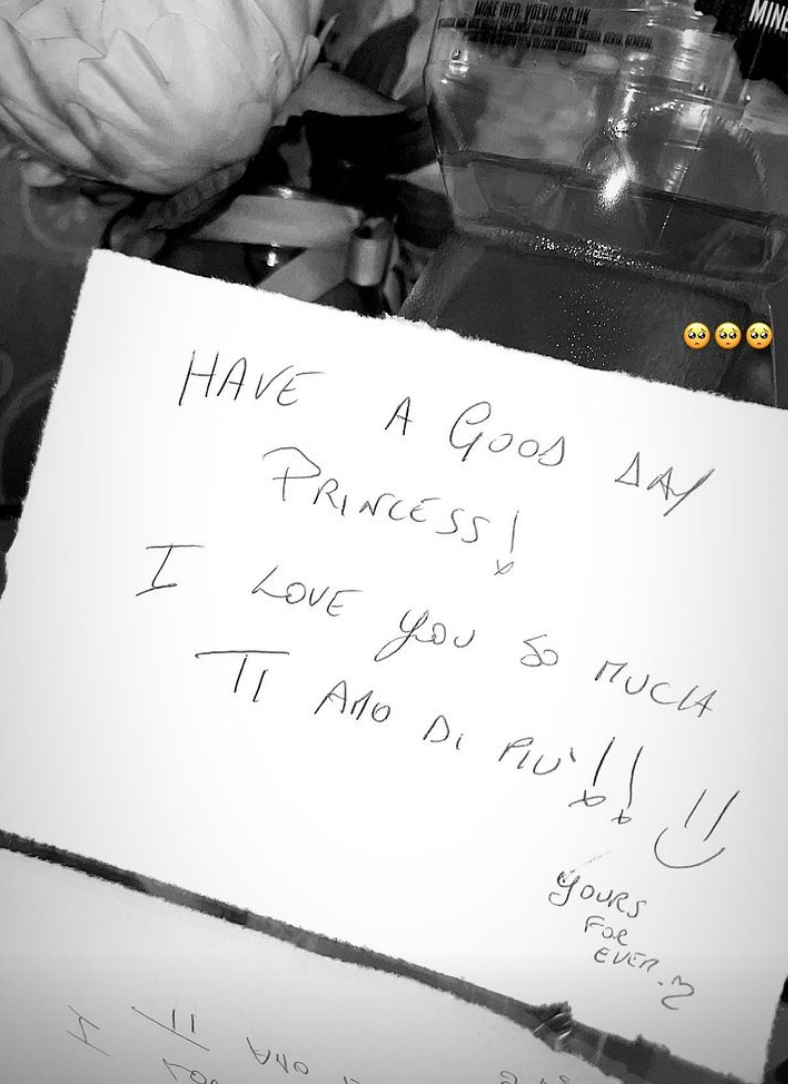 MINE INFO: VOLVIC.CO.UK
MINE
HAVE A GOOD DAY
PRINCESS!
I LOVE YOU SO MUCH
TI AMO DI PIU'!!
YOURS
FOR
EVER.
I TI AMO